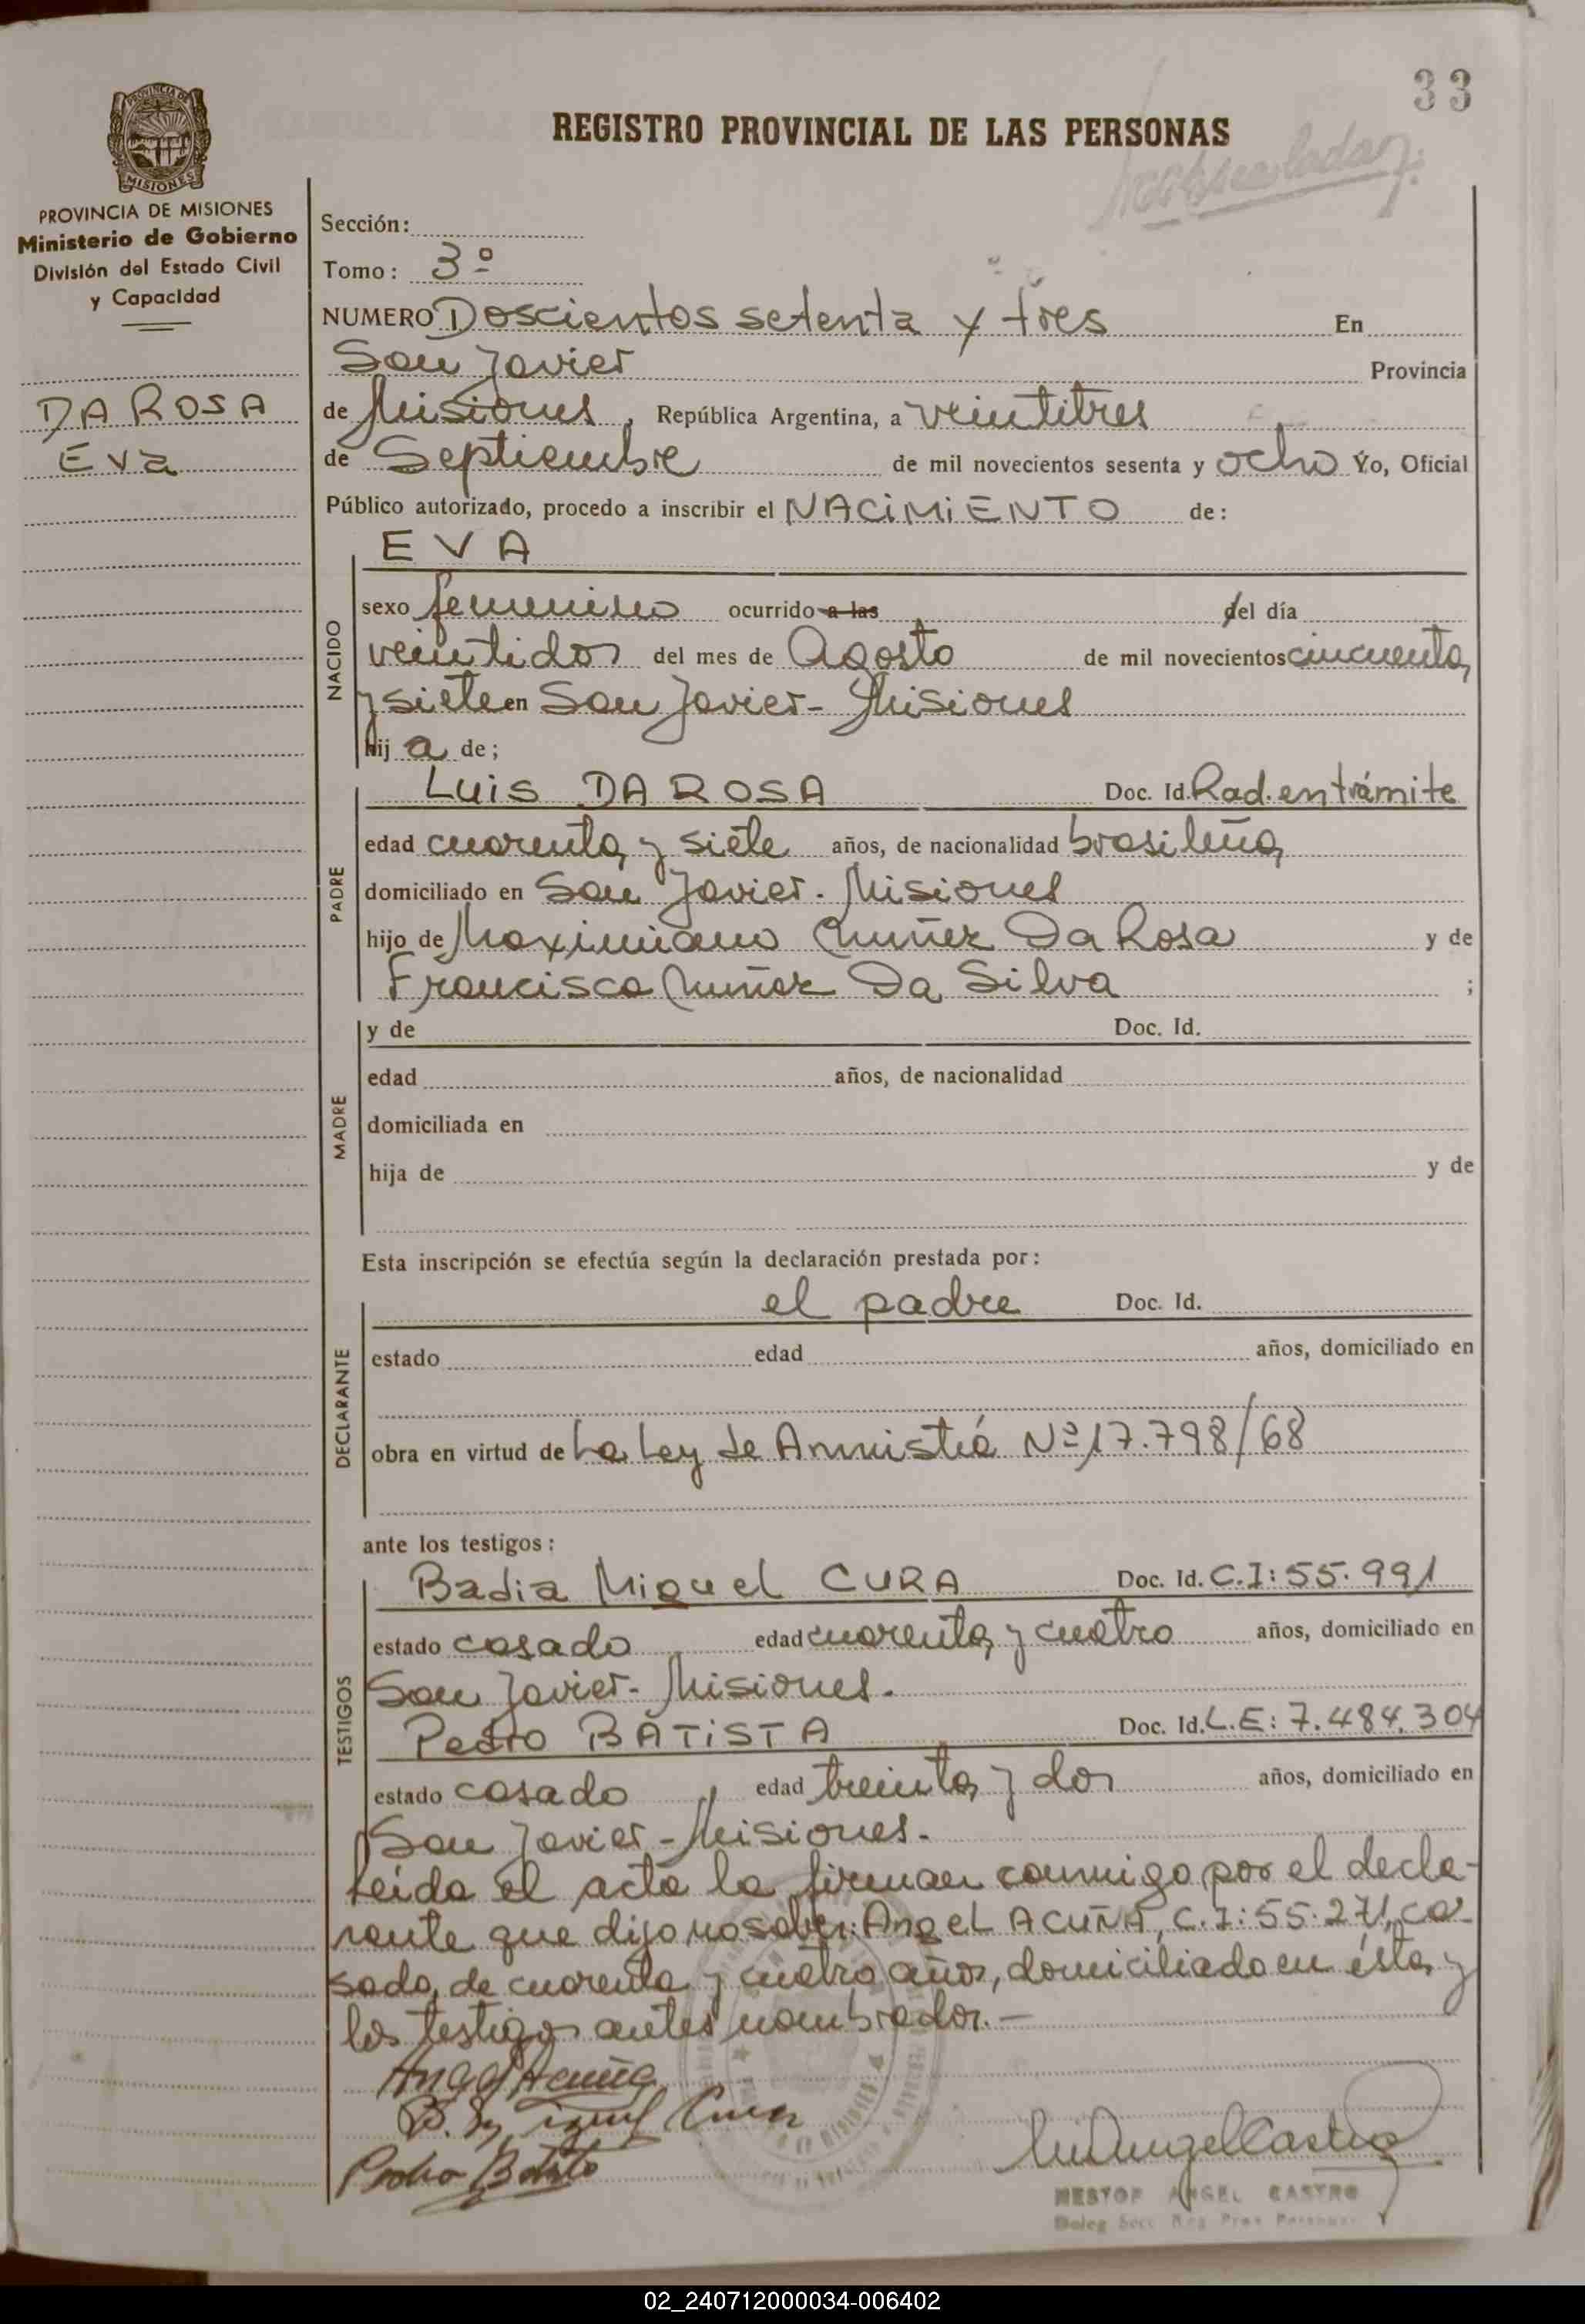 33
REGISTRO PROVINCIAL DE LAS PERSONAS
PROVINCIA DE
MISIONES
PROVINCIA DE MISIONES
Ministerio de Gobierno
División del Estado Civil
y Capacidad
DA ROSA
Eva
Sección:
Tomo: 3º
NUMERO Doscientos setenta y tres En
San Javier Provincia
de Misiones, República Argentina, a veintitres
de Septiembre de mil novecientos sesenta y ocho Yo, Oficial
Público autorizado, procedo a inscribir el NACIMIENTO de:
EVA
NACIDO
sexo femenino ocurrido a las del día
veintidos del mes de Agosto de mil novecientos cincuenta
y siete en San Javier - Misiones
hij a de;
PADRE
Luis DA ROSA Doc. Id. Rad. en trámite
edad cuarenta y siete años, de nacionalidad brasileña
domiciliado en San Javier. Misiones
hijo de Maximiano Nuñez Da Rosa y de
Francisca Nuñez Da Silva ;
MADRE
y de Doc. Id.
edad años, de nacionalidad
domiciliada en
hija de y de
Esta inscripción se efectúa según la declaración prestada por:
DECLARANTE
el padre Doc. Id.
estado edad años, domiciliado en
obra en virtud de La Ley de Amnistía Nº 17.798/68
ante los testigos:
TESTIGOS
Badia Miguel CURA Doc. Id. C.I: 55.991
estado casado edad cuarenta y cuatro años, domiciliado en
San Javier - Misiones.
Pedro BATISTA Doc. Id. L.E: 7.484.304
estado casado, edad treinta y dos años, domiciliado en
San Javier - Misiones.
Leída el acta la firman conmigo por el decla-
rante que dijo no saber: Angel ACUÑA, C.I: 55.271, ca-
sado, de cuarenta y cuatro años, domiciliado en ésta, y
los testigos antes nombrados.-
Angel Acuña
B. Miguel Cura
Pedro Batista
NESTOR ANGEL CASTRO
02_240712000034-006402